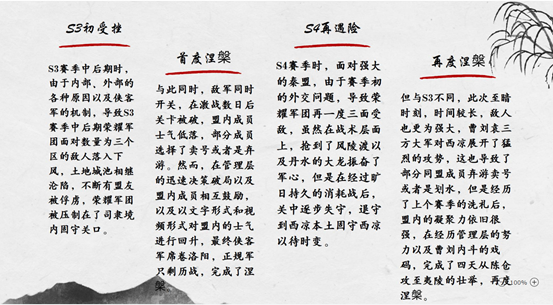 S3初受挫
S3赛季中后期时，
由于内部、外部的
各种原因以及侠客
军的机制，导致S3
赛季中后期荣耀军
团面对数量为三个
区的敌人落入下
风，土地城池相继
沦陷，不断有盟友
被俘虏，荣耀军团
被压制在了司隶境
内固守关口。
首度涅槃
与此同时，敌军同时
开关，在激战数日后
关卡被破，盟内成员
士气低落，部分成员
选择了卖号或者是弃
游。然而，在管理层
的迅速决策破局以及
盟内成员相互鼓励，
以及以文字形式和视
频形式对盟内的士气
进行回升，最终侠客
军席卷洛阳，正规军
只剩历战，完成了涅
槃。
S4再遇险
S4赛季时，面对强大
的秦盟，由于赛季初
的外交问题，导致荣
耀军团再一度三面受
敌，虽然在战术层面
上，抢到了风陵渡以
及丹水的大龙振奋了
军心，但是在经过旷
日持久的消耗战后，
关中逐步失守，退守
到西凉本土固守西凉
以待时变。
再度涅槃
但与S3不同，此次至暗
时刻，时间较长，敌人
也更为强大，曹刘袁三
方大军对西凉展开了猛
烈的攻势，这也导致了
部分同盟成员弃游卖号
或者是划水，但是经历
了上个赛季的洗礼后，
盟内的凝聚力依旧很
强，在经历管理层的努
力以及曹刘内斗的戏
码，完成了四天从陈仓
攻至夷陵的壮举，再度
涅槃。
100%